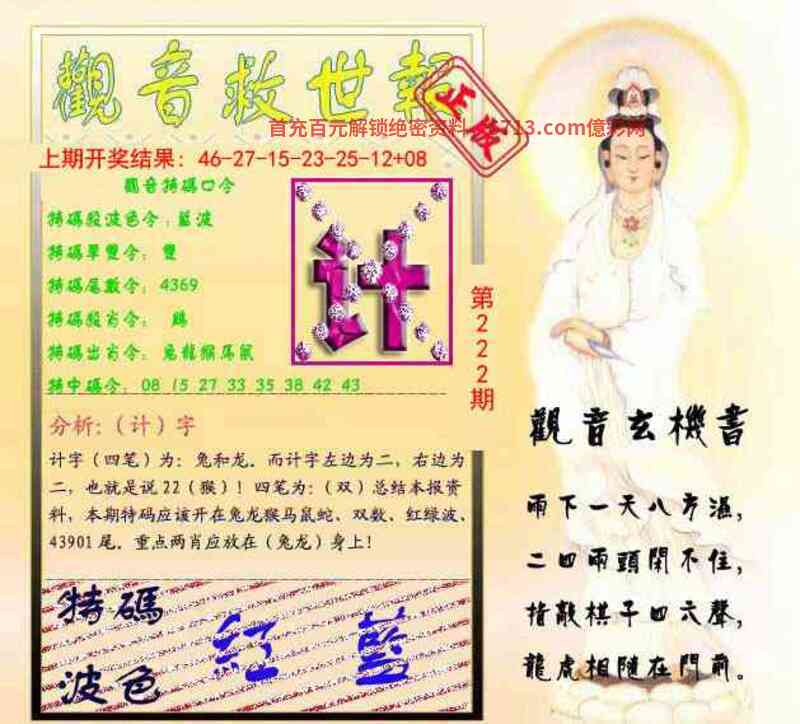 觀音救世報
正版
首充百元解锁绝密资料
713.com億彩网
上期开奖结果：46-27-15-23-25-12+08
觀音特碼口令
特碼殺波色令：藍波
特碼單雙令：雙
特碼尾數令：4369
特碼殺肖令：鷄
特碼出肖令：兔龍猴馬鼠
特中碼令：08 15 27 33 35 38 42 43
计
第222期
分析：（计）字
计字（四笔）为：兔和龙．而计字左边为二，右边为
二，也就是说22（猴）！四笔为：（双）总结本报资
料，本期特码应该开在兔龙猴马鼠蛇、双数、红绿波、
43901尾．重点两肖应放在（兔龙）身上！
特碼
波色
紅 藍
觀音玄機書
雨下一天八方濕，
二四兩頭関不住，
指敲棋子四六聲，
龍虎相隨在門前。